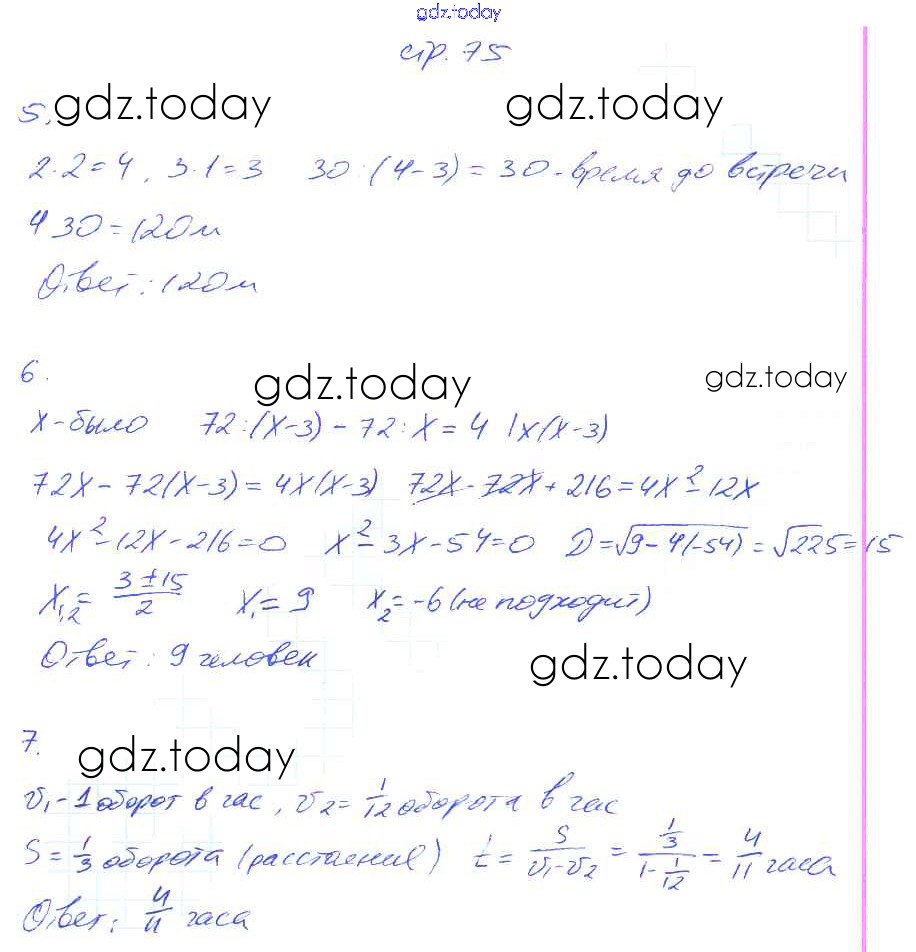 gdz.today
стр. 75
5. gdz.today gdz.today
2·2=4, 3·1=3 30:(4-3)=30 - время до встречи
4 30=120м
Ответ: 120м
6. gdz.today gdz.today
x-было 72:(x-3)-72:x=4 |x(x-3)
72x-72(x-3)=4x(x-3) 72x-72x+216=4x²-12x
4x²-12x-216=0 x²-3x-54=0 D=√9-4(-54)=√225=15
x₁,₂=3±15/2 x₁=9 x₂=-6 (не подходит)
Ответ: 9 человек
gdz.today
7. gdz.today
v₁-1 оборот в час, v₂=1/12 оборота в час
S=1/3 оборота (расстояние) t=S/v₁-v₂=1/3/1-1/12=4/11 часа
Ответ: 4/11 часа